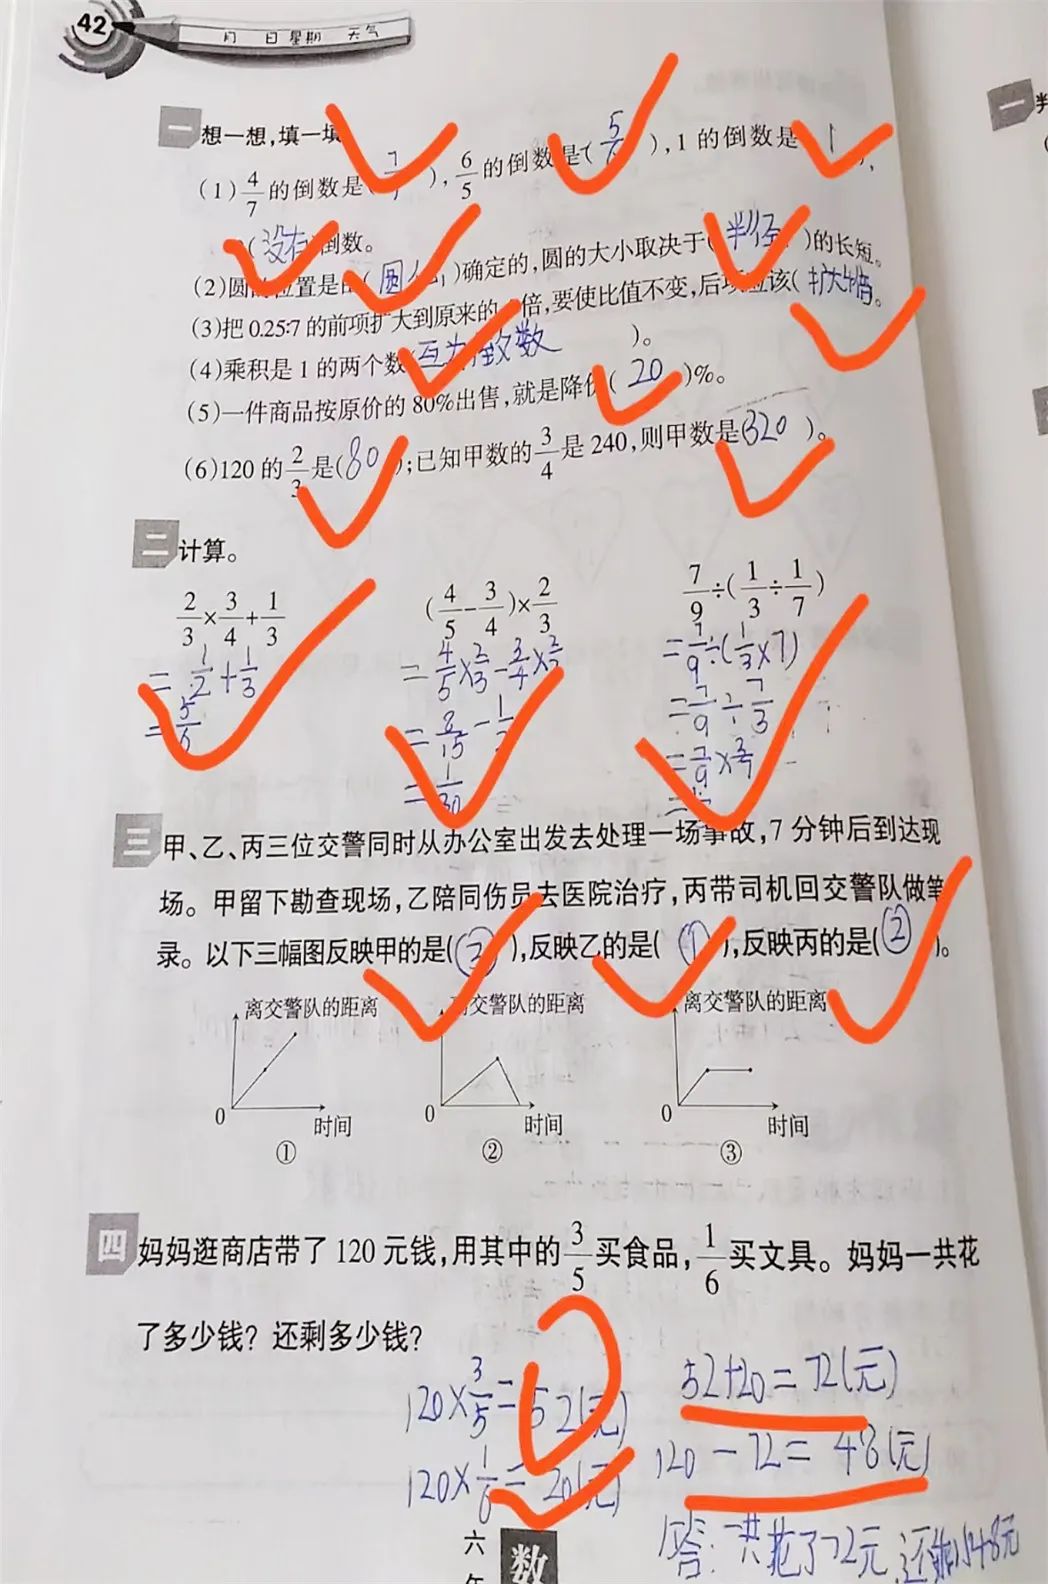 42
月 日 星期 天气
一 想一想,填一填
(1) 4/7 的倒数是( 7/ ), 6/5 的倒数是( 5/ ), 1 的倒数是 1 ,
( 没有 )倒数。
(2)圆 位置是由(圆心)确定的,圆的大小取决于(半径)的长短。
(3)把 0.25∶7 的前项扩大到原来的 倍,要使比值不变,后项应该(扩大 倍)。
(4)乘积是 1 的两个数(互为倒数 )。
(5)一件商品按原价的 80%出售,就是降价( 20 )%。
(6)120 的 2/3 是( 80 );已知甲数的 3/4 是 240,则甲数是(320 )。
二 计算。
2/3 × 3/4 + 1/3 (4/5 - 3/4) × 2/3 7/9 ÷ (1/3 ÷ 1/7)
= 1/2 + 1/3 = 4/5 × 2/3 - 3/4 × 2/3 = 7/9 ÷ (1/3 × 7)
= 5/6 = 8/15 - 1/2 = 7/9 ÷ 7/3
= 1/30 = 7/9 × 3/7
三 甲、乙、丙三位交警同时从办公室出发去处理一场事故,7 分钟后到达现
场。甲留下勘查现场,乙陪同伤员去医院治疗,丙带司机回交警队做笔
录。以下三幅图反映甲的是( ③ ),反映乙的是( ① ),反映丙的是( ② )。
离交警队的距离 离交警队的距离 离交警队的距离
0 时间 0 时间 0 时间
① ② ③
四 妈妈逛商店带了 120 元钱,用其中的 3/5 买食品, 1/6 买文具。妈妈一共花
了多少钱?还剩多少钱?
120 × 3/5 = 52(元) 52+20=72(元)
120 × 1/6 = 20(元) 120-72=48(元)
答:一共花了72元,还剩48元
六
年
数